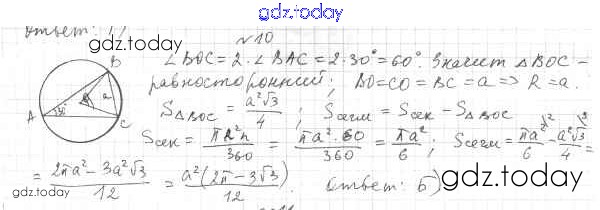 gdz.today
Ответ: 1)
gdz.today
№10
∠BOC = 2·∠BAC = 2·30° = 60°. Значит △BOC –
равносторонний; BO=CO=BC=a => R=a.
S△BOC = a²√3/4 ; Sсегм = Sсек – S△BOC
B
a
A 30° C
Sсек = πR²n/360 = πa²·60/360 = πa²/6 ; Sсегм = πa²/6 – a²√3/4 =
= 2πa² – 3a²√3/12 = a²(2π – 3√3)/12 Ответ: Б)
gdz.today
gdz.today